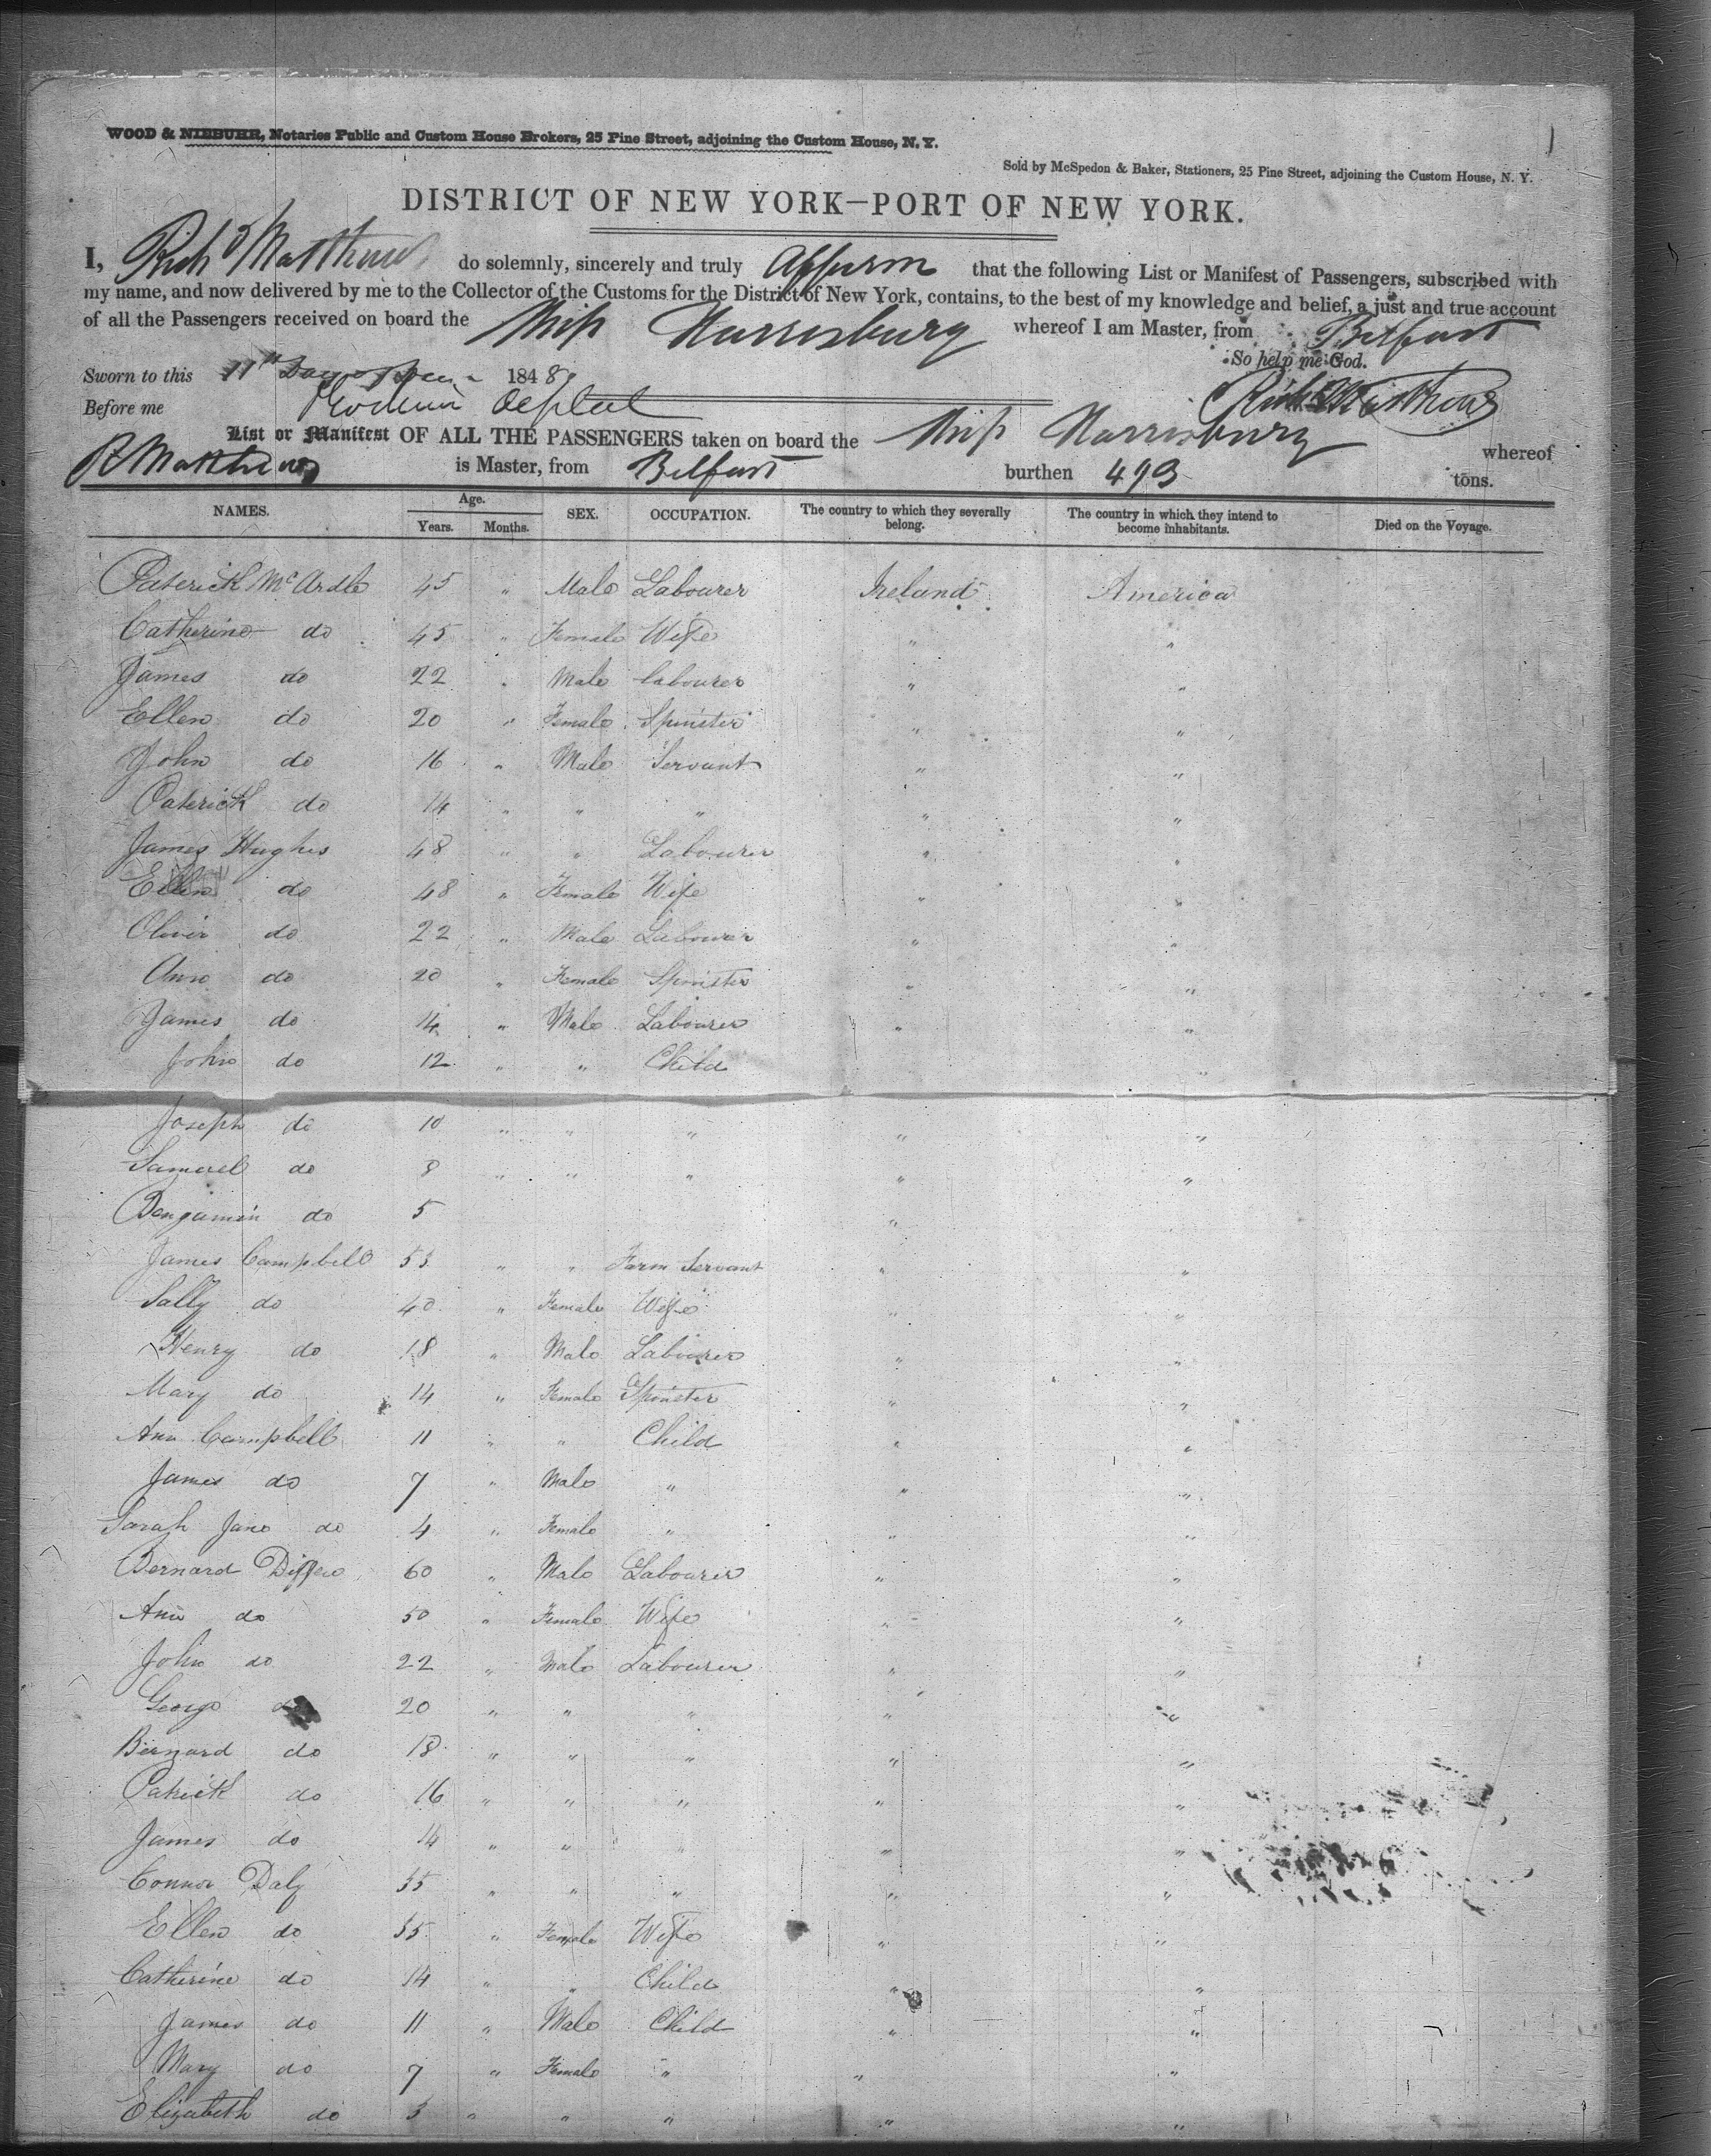 WOOD & NIEBUHR, Notaries Public and Custom House Brokers, 25 Pine Street, adjoining the Custom House, N. Y.
Sold by McSpedon & Baker, Stationers, 25 Pine Street, adjoining the Custom House, N. Y.
DISTRICT OF NEW YORK—PORT OF NEW YORK.
I, Richd Matthews do solemnly, sincerely and truly Affirm that the following List or Manifest of Passengers, subscribed with
my name, and now delivered by me to the Collector of the Customs for the District of New York, contains, to the best of my knowledge and belief, a just and true account
of all the Passengers received on board the Ship Harrisburg whereof I am Master, from Belfast
So help me God.
Sworn to this 11th Day of 1848
Before me Richd Matthews
List or Manifest OF ALL THE PASSENGERS taken on board the Ship Harrisburg whereof
R Matthews is Master, from Belfast burthen 493 tons.
NAMES. Age. Years. Months. SEX. OCCUPATION. The country to which they severally belong. The country in which they intend to become inhabitants. Died on the Voyage.
Paterick McArdle 45 " Male Labourer Ireland America
Catherine do 45 " Female Wife " "
James do 22 " Male labourer " "
Ellen do 20 " Female Spinster " "
John do 16 " Male Servant " "
Paterick do 14 " " " " "
James Hughes 48 " " Labourer " "
Ellen do 48 " Female Wife " "
Oliver do 22 " Male Labourer " "
Ann do 20 " Female Spinster " "
James do 14 " Male Labourer " "
John do 12 " " Child "
Joseph do 10 " " " " "
Samuel do 8 " " " " "
Bengamin do 5 "
James Campbell 55 " " Farm Servant " "
Sally do 40 " Female Wife " "
Henry do 18 " Male Labourer " "
Mary do 14 " Female Spinster " "
Ann Campbell 11 " " Child " "
James do 7 " Male " " "
Sarah Jane do 4 " Female " " "
Bernard 60 " Male Labourer " "
Ann do 50 " Female Wife " "
John do 22 " Male Labourer " "
George do 20 " " " " "
Bernard do 18 " " " " "
Patrick do 16 " " " " "
James do 14 " " " " "
Connor Daly 35 " " " " "
Ellen do 35 " Female Wife " "
Catherine do 14 " " Child " "
James do 11 " Male Child " "
Mary do 7 " Female " " "
Elizabeth do 3 " " " " "